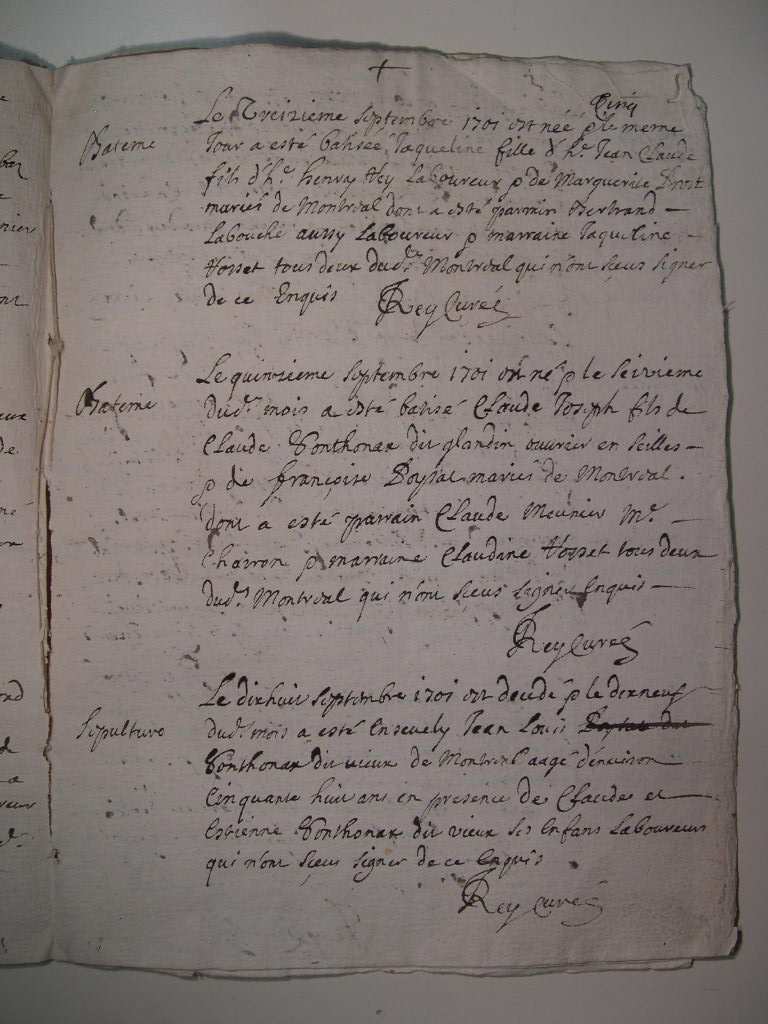 Cinq
Le Treizieme septembre 1701 est néé & le meme
Bateme
Jour a esté batisée Jaqueline fille d'h.e Jean Claude
fils d'h.e henry Ney Laboureux & de Marguerite
mariés de Montréal dont a esté parrain Bertrand —
Labouché aussy Laboureur & marraine Jaqueline —
Vosset tous deux dud.t Montreal qui n'ont sceus signer
de ce Enquis
Rey Curé
Le quinzieme septembre 1701 est né & le seizieme
Bateme
dud.t mois a esté batisé Claude Joseph fils de
Claude Vonthonax dit glandin ouvrier en seilles —
& de françoise Poysat mariés de Montréal.
dont a esté parrain Claude Meunier M.e —
Charron & marraine Claudine Vosset tous deux
dud.t Montréal qui n'ont sceus signer Enquis —
Rey Curé
Le dixhuit septembre 1701 est decedé & le dixneuf
Sepulture
dud.t mois a esté Ensevely Jean Louis
Vonthonax dit vieux de Montréal aagé d'environ
Cinquante huit ans en presence de Claude et —
Estienne Vonthonax dit vieux ses Enfans Laboureurs
qui n'ont sceus signer de ce Enquis
Rey Curé